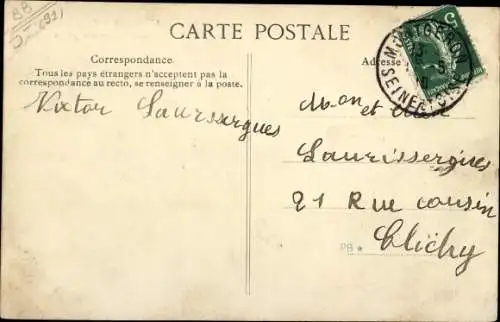 BB
CARTE POSTALE
Correspondance
Tous les pays étrangers n'acceptent pas la
correspondance au recto, se renseigner à la poste.
Victor Laurissergues
Adresse
MONTGERON
SEINE-ET-OISE
5
Mon et
Laurissergues
21 Rue cousin
Clichy
PB